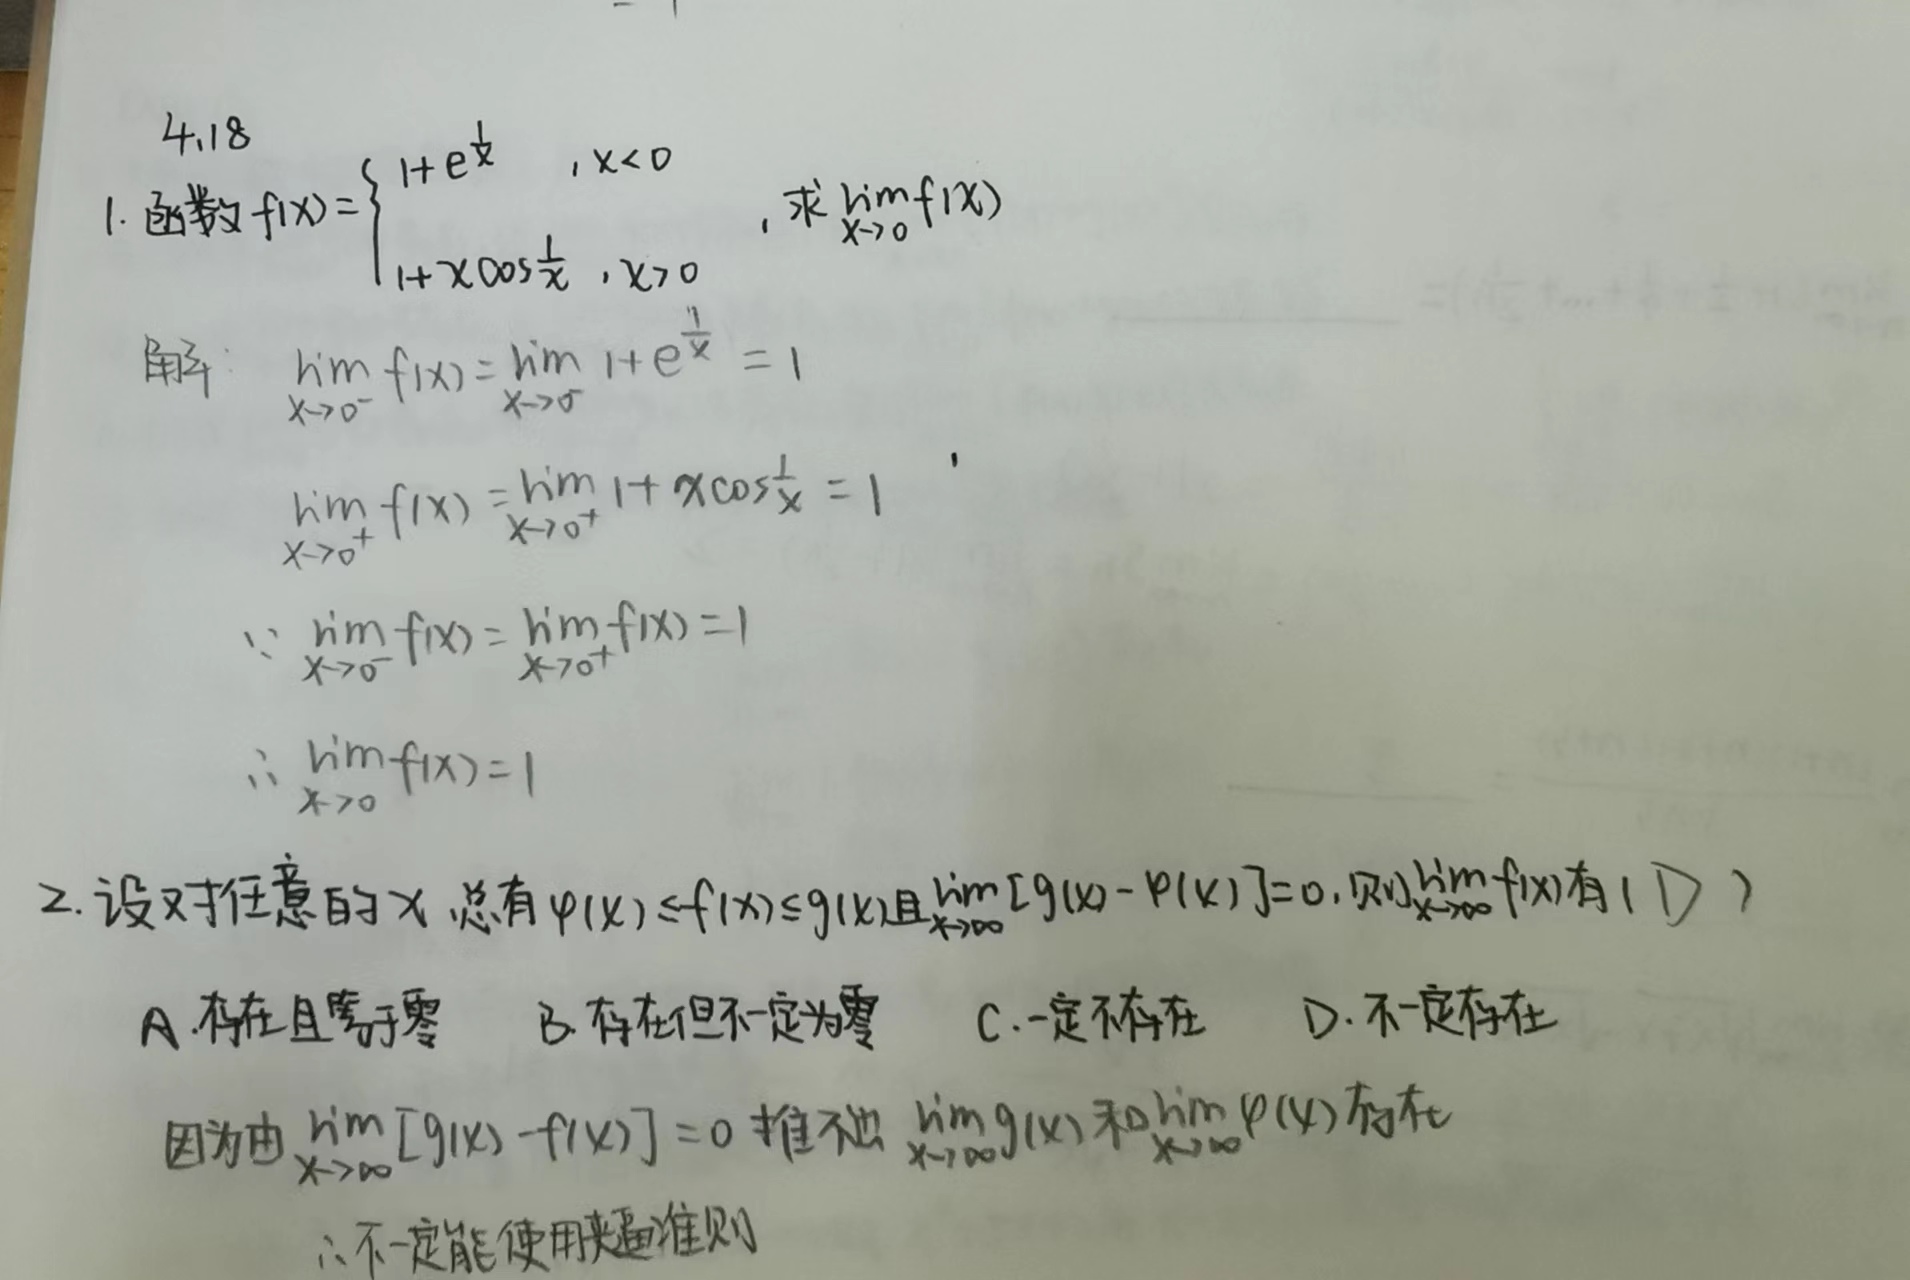 4.18
1. 函数 f(x)= { 1+e^{1/x} , x<0
1+xcos 1/x , x>0 , 求 lim_{x→0} f(x)
解: lim_{x→0⁻} f(x) = lim_{x→0⁻} 1+e^{1/x} = 1
lim_{x→0⁺} f(x) = lim_{x→0⁺} 1+xcos 1/x = 1
∵ lim_{x→0⁻} f(x) = lim_{x→0⁺} f(x) = 1
∴ lim_{x→0} f(x) = 1
2. 设对任意的x 总有 φ(x)≤f(x)≤g(x)且 lim_{x→∞} [g(x)-φ(x)]=0, 则 lim_{x→∞} f(x)有( D )
A. 存在且等于零 B. 存在但不一定为零 C. 一定不存在 D. 不一定存在
因为由 lim_{x→∞} [g(x)-f(x)] = 0 推不出 lim_{x→∞} g(x) 和 lim_{x→∞} φ(x) 存在
∴不一定能使用夹逼准则